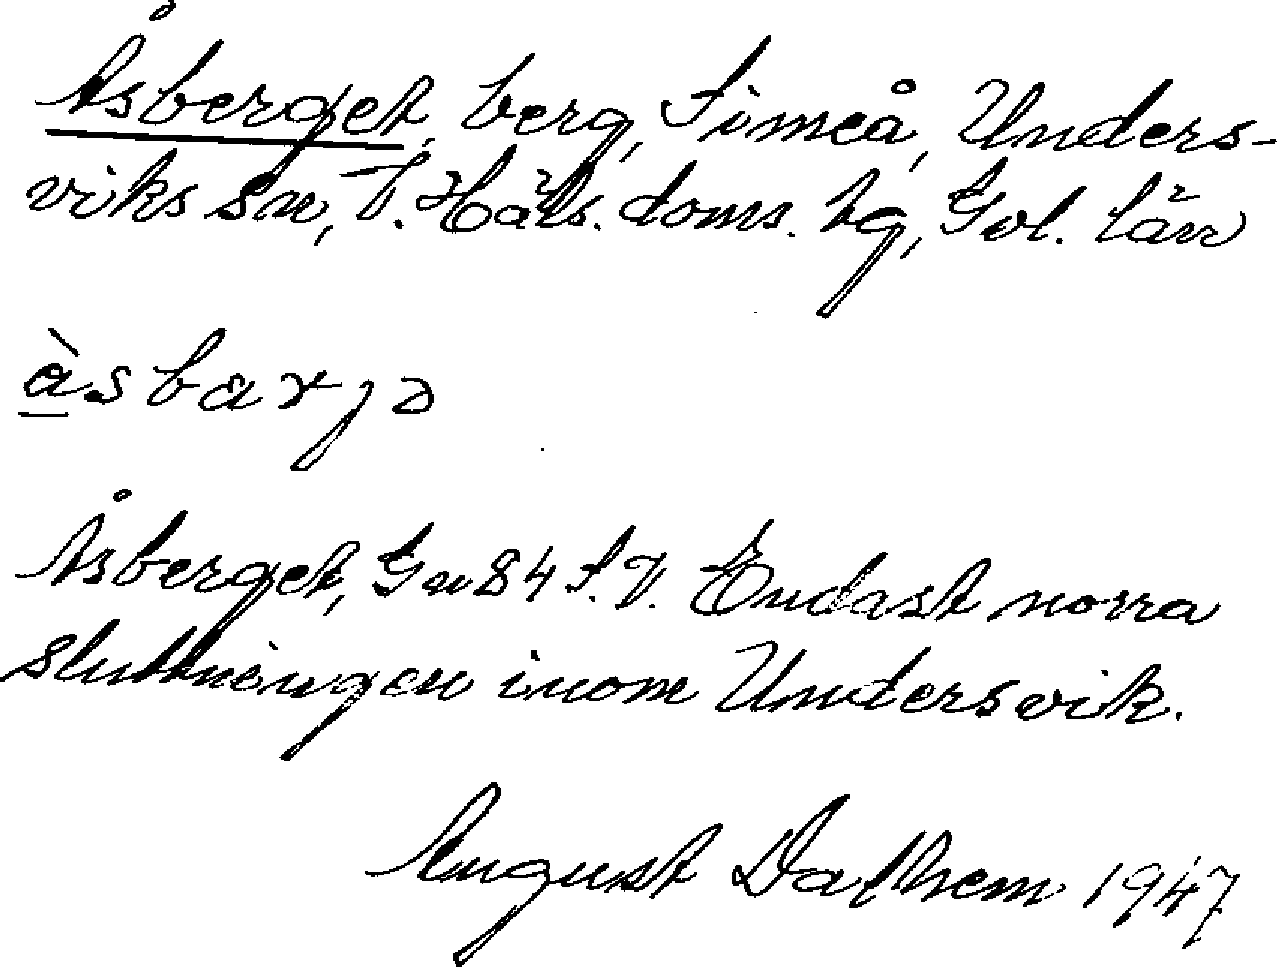 Åsberget, berg, Simeå, Unders-
viks sn, V. Häls. doms. hg, Gvl. län
àsbarjə
Åsberget, Gn 84 S.V. Endast norra
sluttningen inom Undersvik.
August Dalhem 1947